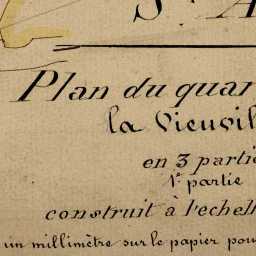 S. A
Plan du quar
la Vieuvil
en 3 partie
1e partie
construit à l'echell
un millimètre sur le papier pou